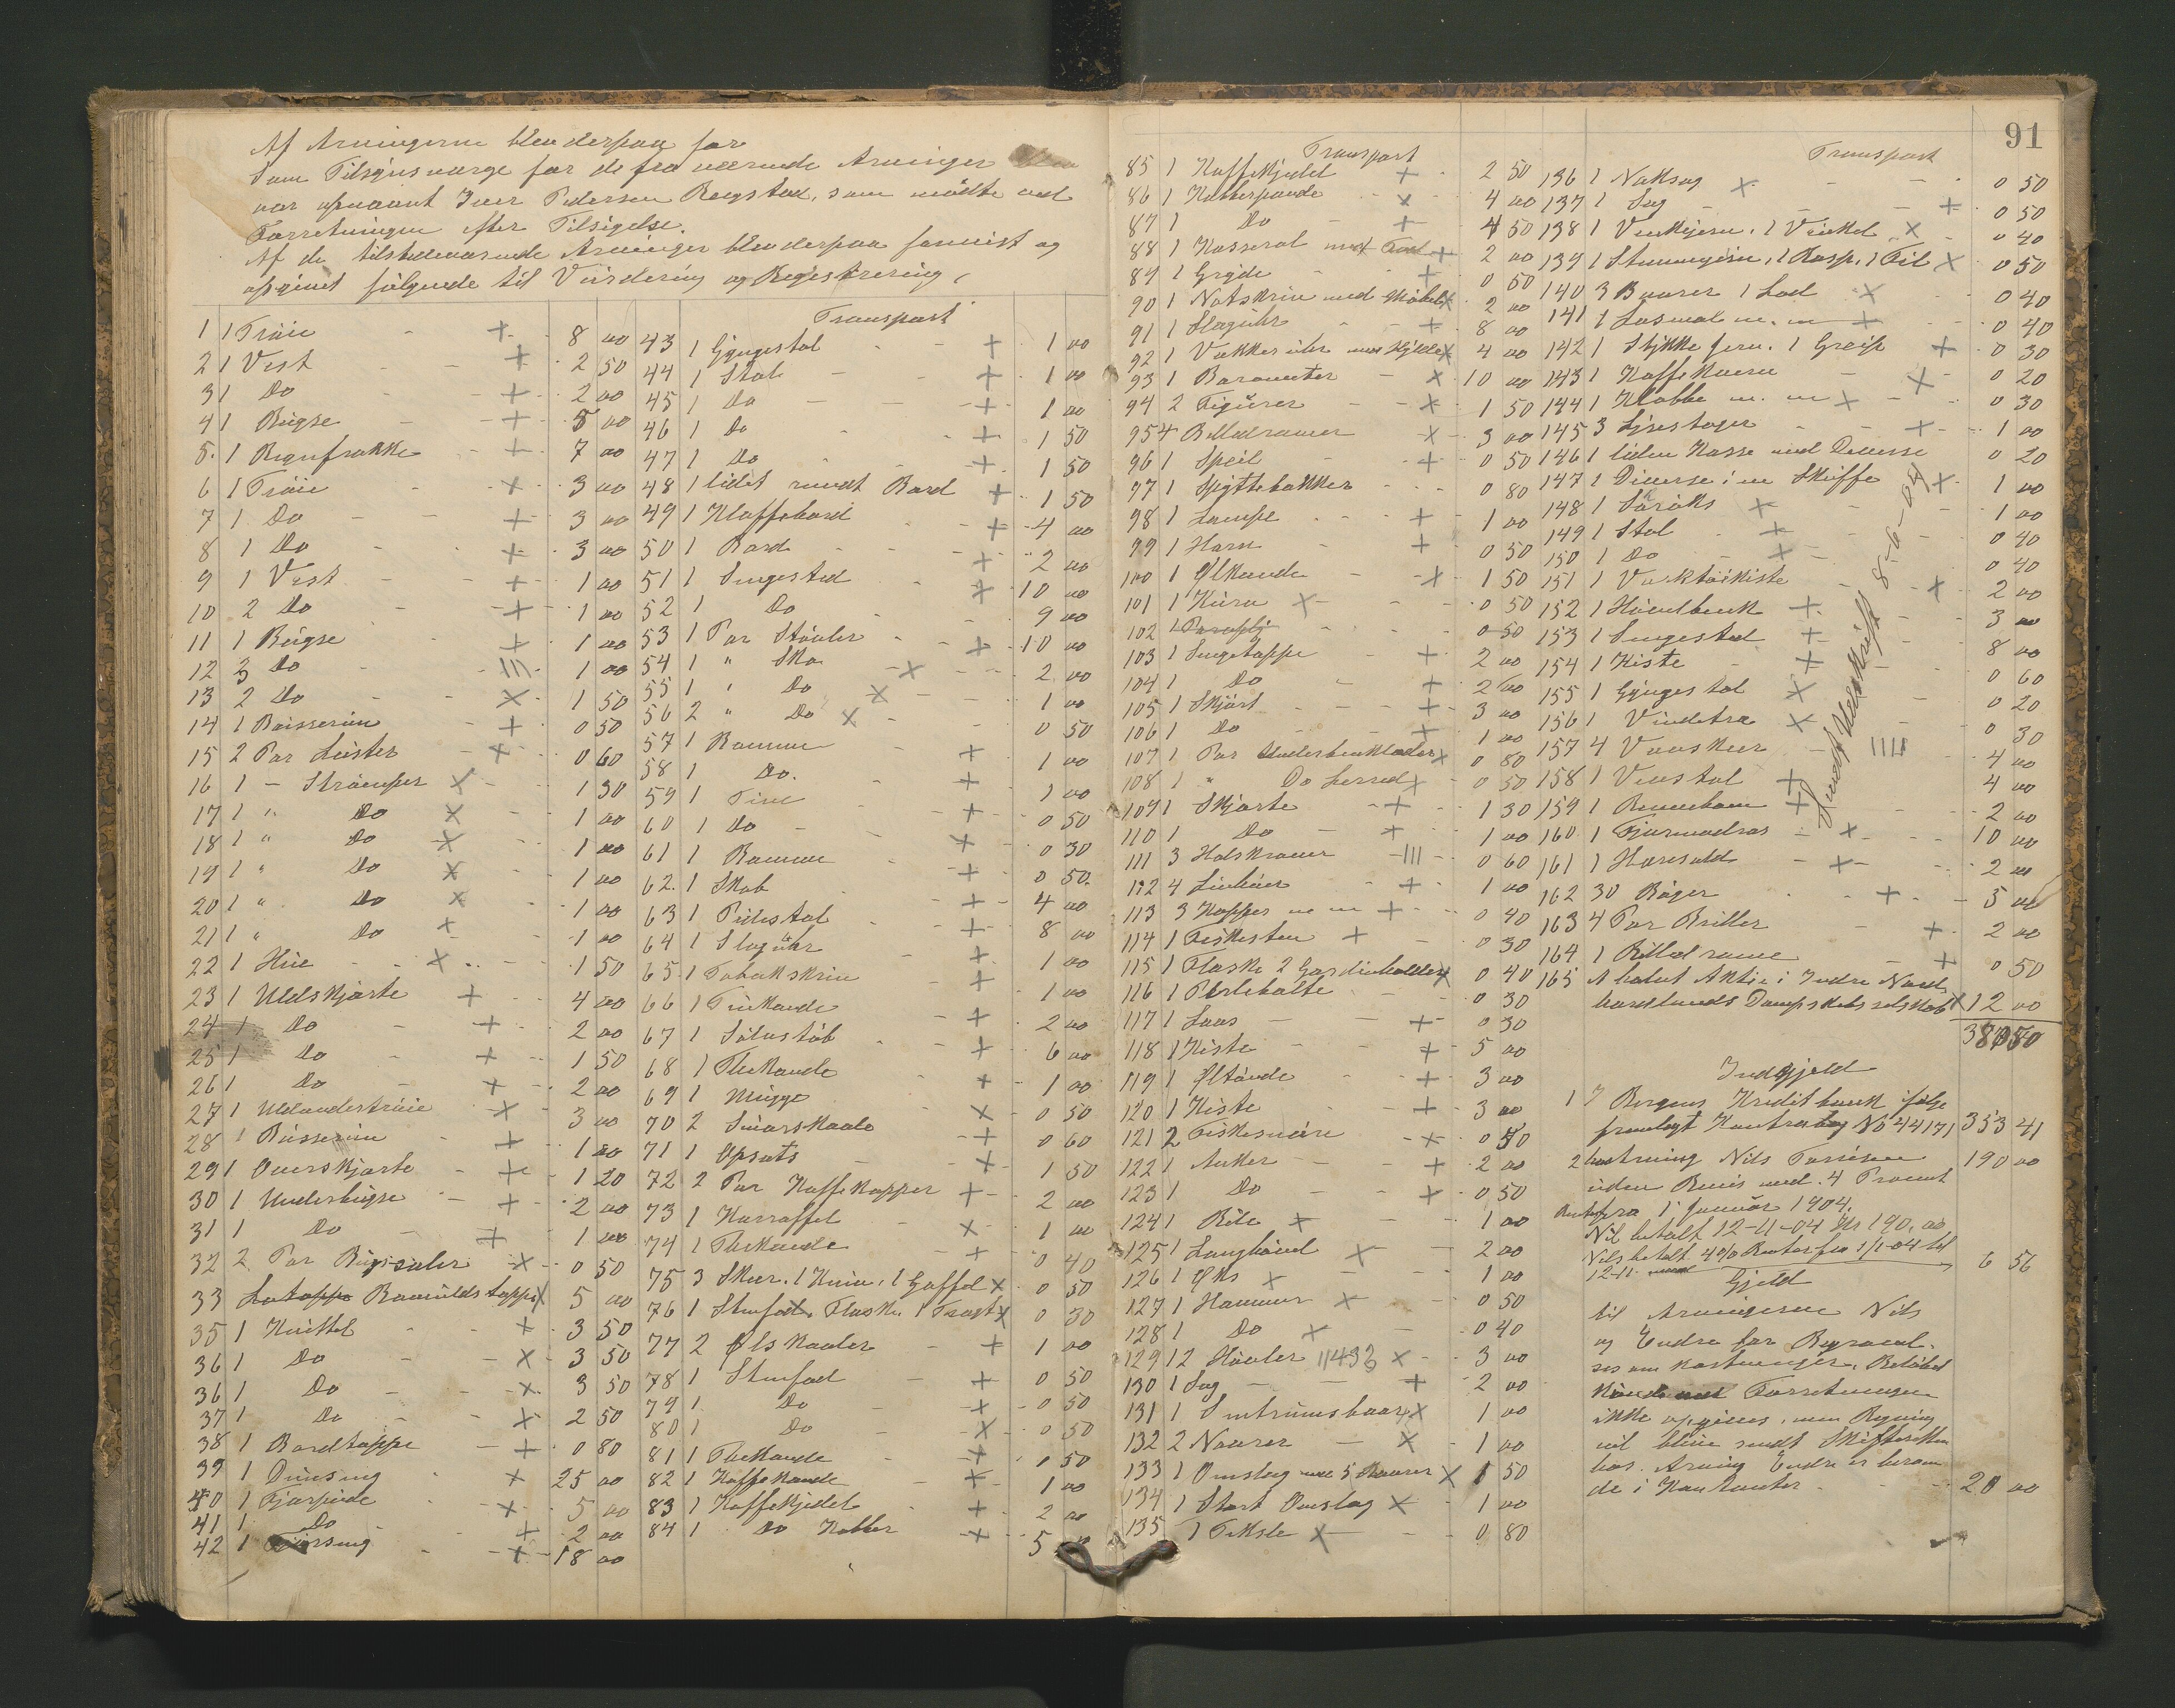 Af Arvingerne blev derpaa for
Som Tilsynsværge for de fraværende Arvinger
var opnævnt Iver Pedersen Røgstad, som mødte ved
Forretningen efter Tilsigelse.
Af de tilstedeværende Arvinger blev derpaa fremvist og
opgivet følgende til Vurdering og Registrering,
1 1 Trøie + 8 00
2 1 Vest + 2 50
3 1 Do + 2 00
4 1 Bugse + 5 00
5. 1 Regnfrakke + 7 00
6 1 Trøie + 3 00
7 1 Do + 3 00
8 1 Do + 3 00
9 1 Vest + 1 00
10 2 Do + 1 00
11 1 Bugse + 1 00
12 3 Do III 1 00
13 2 Do X 1 50
14 1 Baisserun + 0 50
15 2 Par Luster + 0 60
16 1 - Strømper X 1 30
17 1 " Do X 1 00
18 1 " Do X 1 00
19 1 " Do X 1 00
20 1 " Do X 1 00
21 1 " Do + 1 00
22 1 Hue X 1 50
23 1 Uldskjorte + 4 00
24 1 Do + 2 00
25 1 Do + 1 50
26 1 Do + 2 00
27 1 Uldundertrøie X 3 00
28 1 Busserun + 1 00
29 1 Overskjorte + 1 20
30 1 Underbugse + 2 00
31 1 Do + 1 00
32 2 Par Bugsesæler X 0 50
33 Baatuldstæppe X 5 00
35 1 Kuittel + 3 50
36 1 Do X 3 50
36 1 Do X 3 50
37 1 Do X 2 50
38 1 Bordtæppe + 0 80
39 1 Dunseng + 25 00
40 1 Fjærpude X 5 00
41 1 Do + 2 00
42 1 + 18 00
Transport
43 1 Gyngestol + 1 00
44 1 Stol + 1 00
45 1 Do + 1 00
46 1 Do + 1 50
47 1 Do + 1 50
48 1 lidet rundt Bord + 1 50
49 1 Klaffebord + 4 00
50 1 Bord + 2 00
51 1 Sengested + 10 00
52 1 Do 9 00
53 1 Par Støvler + 10 00
54 1 " Sko X 2 00
55 1 " Do X 1 00
56 2 " Do X 0 50
57 1 Bomme + 1 00
58 1 Do. + 1 00
59 1 Tine + 0 50
60 1 Do + 0 30
61 1 Bomme + 0 50
62. 1 Skab + 4 00
63 1 Pidestal + 8 00
64 1 Slagúhr + 1 00
65. 1 Tobakskrin + 1 00
66 1 Tinkande + 2 00
67 1 Sølvstøb + 6 00
68 1 Thekande + 1 00
69 1 Mugge X 0 50
70 2 Smørskaale + 0 60
71 1 Opsats X 1 50
72 2 Par Kaffekopper + 2 00
73 1 Karaffel X 1 00
74 1 Thekande + 0 40
75 3 Skeer. 1 Kniv, 1 Gaffel X 0 50
76 1 Stenfad, Flaske 1 Tragt X 0 30
77 2 Ølskaaler + 1 00
78 1 Stenfad + 0 50
79 1 Do + 0 50
80 1 Do X 0 50
81 1 Thekande + 0 50
82 1 Kaffekande + 1 00
83 1 Kaffekjedel + 2 00
84 1 Do Kobber + 5
Transport
85 1 Kaffekjedel + 2 50
86 1 Kobberpande X 4 00
87 1 Do + 4 50
88 1 Kasserol med Fod + 2 00
89 1 Gryde + 0 50
90 1 Notskrin med X 2 00
91 1 Slaguhr + 8 00
92 1 Vækkeruhr med X 4 00
93 1 Barometer X 10 00
94 2 Figurer X 1 50
95 4 Billedramer X 3 00
96 1 Speil + 0 50
97 1 Spyttebakker 0 80
98 1 Lampe + 1 00
99 1 Horn + 0 50
100 1 Ølkande X 1 50
101 1 Kurv X 0 50
102 1 Paraply 0 50
103 1 Sengetæppe + 2 00
104 1 Do + 2 00
105 1 Skjørt + 3 00
106 1 Do + 1 00
107 1 Par Underbenklæder X 0 80
108 1 " Do Lerred X 0 50
109 1 Skjorte + 1 30
110 1 Do + 1 00
111 3 Halskraver III 0 60
112 4 + 1 00
113 3 Kopper m m + 0 40
114 1 Fiskesten + 0 30
115 1 Flaske 2 Gardinholdere X 0 40
116 1 0 30
117 1 Laas + 0 30
118 1 Kiste + 5 00
119 1 Øltønde + 3 00
120 1 Kiste + 3 00
121 2 Fiskesnøre X 0 50
122 1 Anker + 2 00
123 1 Do + 0 50
124 1 Bile X 1 00
125 1 Langhøvel X 2 00
126 1 Øks X 1 00
127 1 Hammer X 0 50
128 1 Do X 0 40
129 12 Høvler X 3 00
130 1 Sag + 2 00
131 1 Sentrumsbaar X 1 00
132 2 Navrer X 1 00
133 1 Omslag med 5 Baarer X 1 50
134 1 Stort Omslag X 1 00
135 1 Teksle X 0 80
91
Transport
136 1 Naksag X 0 50
137 1 Sag + 0 50
138 1 Vinkjern. 1 Vinkel X 0 40
139 1 Stemmejern, 1 Rasp, 1 Fil X 0 50
140 3 Baarer 1 Lod X 0 40
141 1 m. m + 0 40
142 1 Stykke Jern. 1 Greip + 0 30
143 1 Kaffekværn X 0 20
144 1 Klubbe m. m X 0 30
145 3 Lysestager + 1 00
146 1 liden Kasse med Diverse 0 20
147 1 Diverse i en Skuffe X 1 00
148 1 X 1 00
149 1 Stol + 0 40
150 1 Do + 0 40
151 1 Værktøikiste X 2 00
152 1 Høvelbænk + 3 00
153 1 Sengested + 8 00
154 1 Kiste + 0 60
155 1 Gyngestol X 0 20
156 1 Vindetræ X 0 30
157 4 Vansker IIII 4 00
158 1 Vevstol + 4 00
159 1 Rennebom + 2 00
160. 1 Fjærmadras X 10 00
161 1 Haresold X 2 00
162 30 Bøger + 5 00
163 4 Par Briller + 2 00
164 1 Billedrame + 0 50
165 1 halv Aktie i Indre Nord
hordlands Dampskibsselskab X 12 00
Sendt Udskrift 8-6-04
Indgjeld
1 I Bergens Kreditbank ifølge
fremlagt Kontrabog No 44171 353 41
2 hos Arving Nils 190 00
uden Bevis med 4 Procent
Renter fra 1 Januar 1904.
Nil betalt 12-11-04 Kr 190,00
Nils betalt 4% Renter fra 1/1-04 til
12-11 6 56
Gjeld
til Arvingerne Nils
og Endre for Begravel-
sesomkostninger. Beløbet
Forretningen
ikke opgives, men Regning
vil blive sendt Skifteretten
hos Arving Endre er beroen
de i Kontanter 20 00